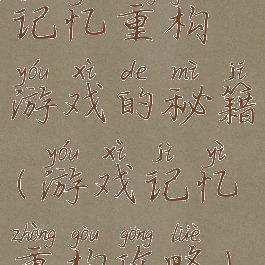 记忆重构
yóu xì de mì jí
游戏的秘籍
yóu xì jì yì
(游戏记忆
zhòng gòu gōng lüè
重构攻略)